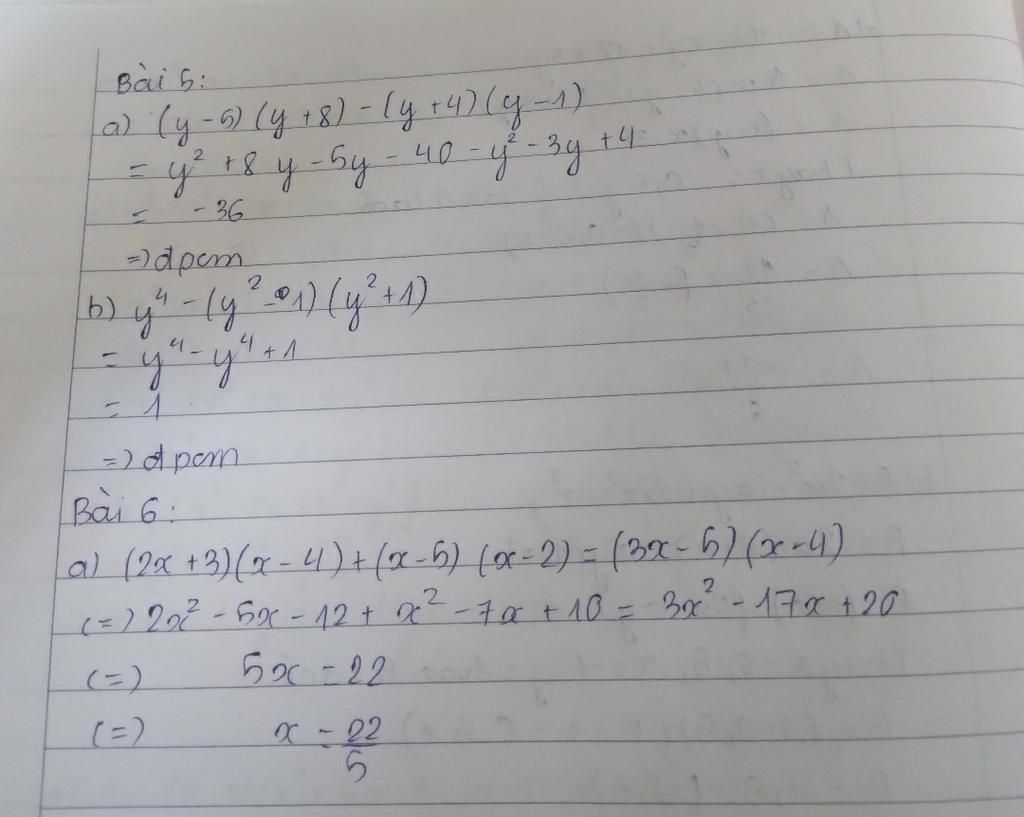 Bài 5:
a) (y - 5) (y + 8) - (y + 4) (y - 1)
= y² + 8y - 5y - 40 - y² - 3y + 4
= -36
=> đpcm
b) y⁴ - (y² - 1) (y² + 1)
= y⁴ - y⁴ + 1
= 1
=> đpcm
Bài 6:
a) (2x + 3)(x - 4) + (x - 5) (x - 2) = (3x - 5) (x - 4)
(=) 2x² - 5x - 12 + x² - 7x + 10 = 3x² - 17x + 20
(=) 5x = 22
(=) x = 22/5